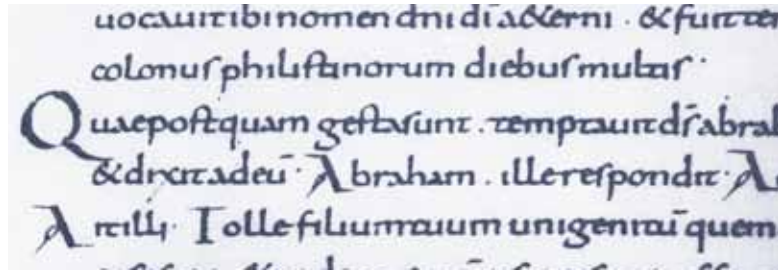 uocauit ibi nomen dni di aet&erni · & fuit
colonus philistinorum diebus multis ·
Quae postquam gesta sunt . temptauit ds abra
& dixit ad eū · Abraham . ille respondit ·
Ait illi · Tolle filium tuum unigenitū quem